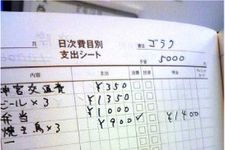 月
日次費目別
支出シート
費目 ゴラク
予算 5000
円
内容 支出
神宮交通費 ¥350
ビール×3 ¥1350
弁当 ¥1000
焼き鳥×3 ¥900 ✓ ¥1400